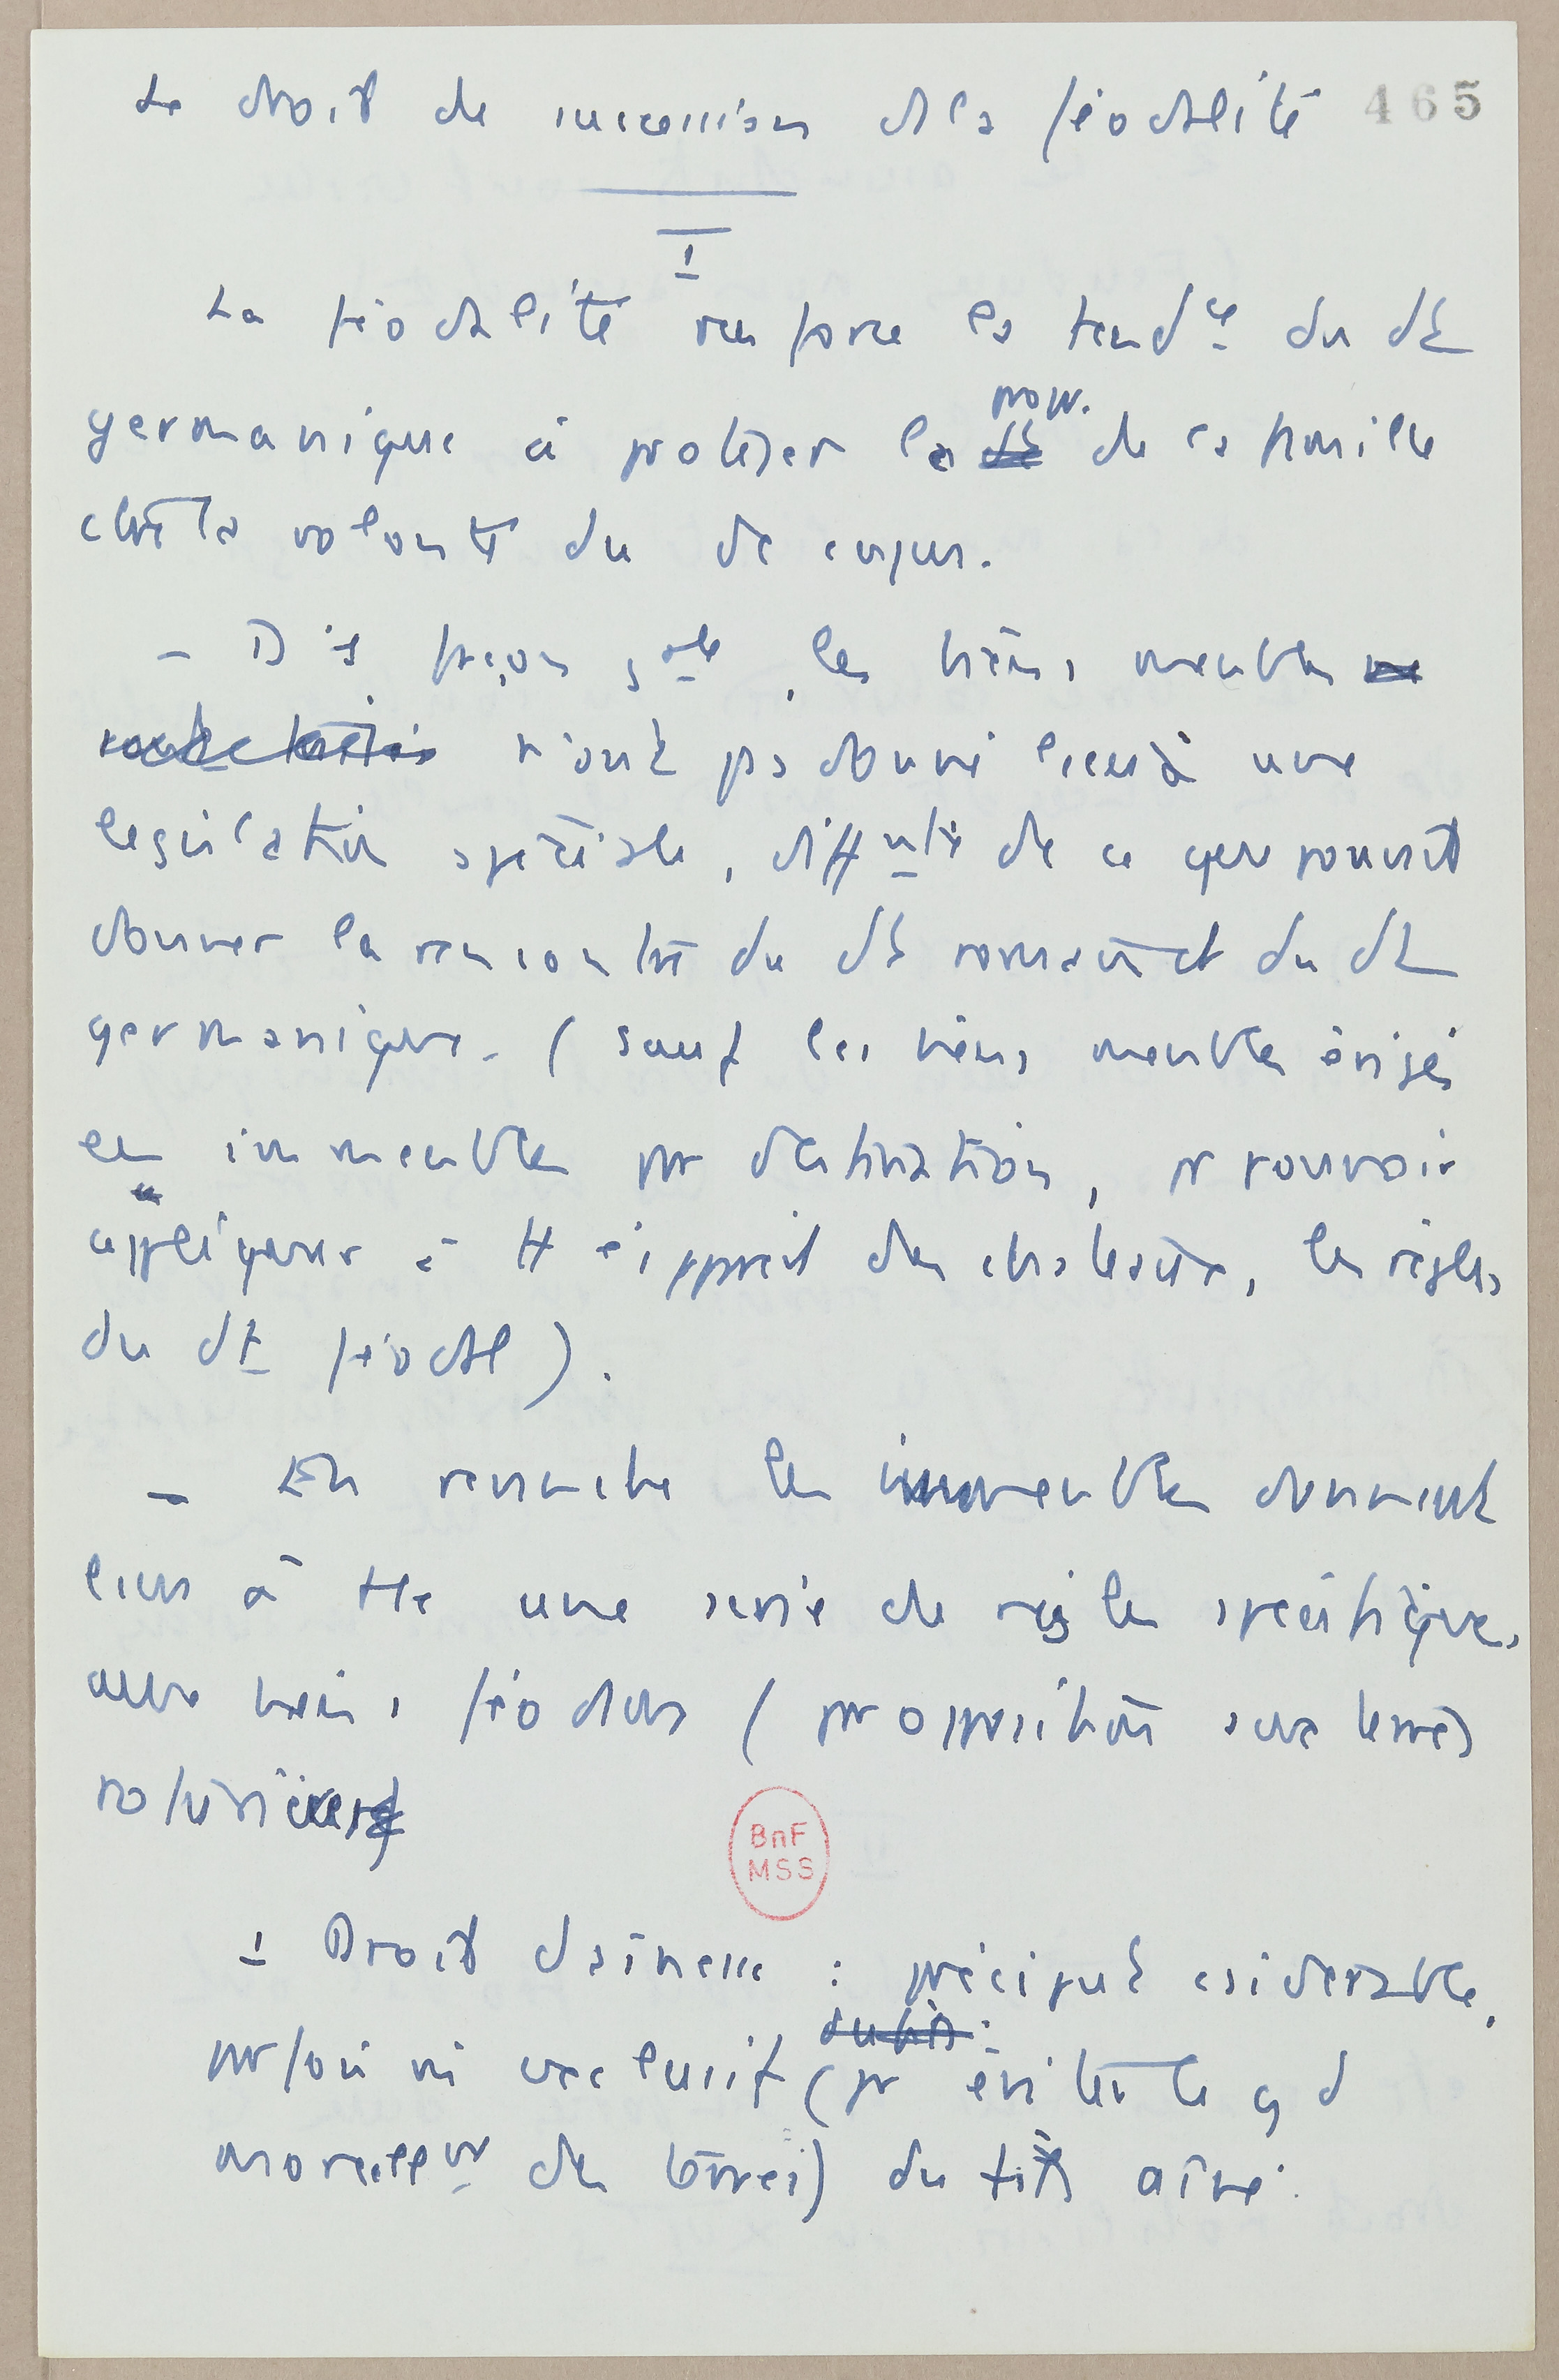 Le droit de succession ds la féodalité 465
I
La féodalité renforce la tendce du dt
germanique à protéger la prop. de la famille
ctre la volonté du de cujus.
- D'1 façon gale, les biens meubles
n'ont pas donné lieu à une
législation spéciale, diffnte de ce que pouvait
donner la rencontre du dt romain et du dt
germanique. (sauf les biens meubles érigés
en immeubles par destination, pr pouvoir
appliquer à tt l'appareil des châteaux, les règles
du dt féodal).
- En revanche les immeubles donnent
lieu à tte une série de règles spécifiques,
aux biens féodaux (par opposition aux terres)
roturières
1 Droit d'aînesse : préciput csidérable,
parfois vi exclusif (pr éviter le gd
morcellt des terres) du fils aîné.
BnF
MSS